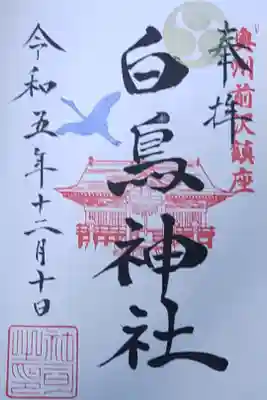 奥州前沢鎮座
奉拝
白鳥神社
令和五年十二月十日
社司之印